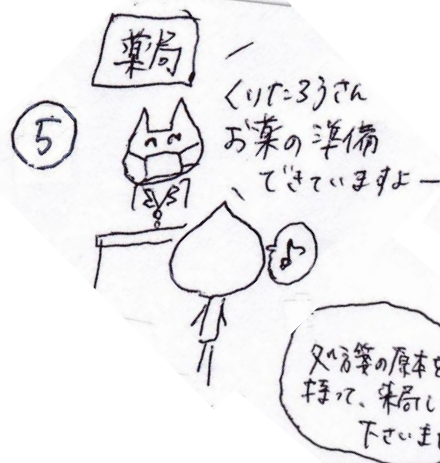 薬局
⑤
くりたろうさん
お薬の準備
できていますよー
♪
処方箋の原本を
持って、来局し
下さいま